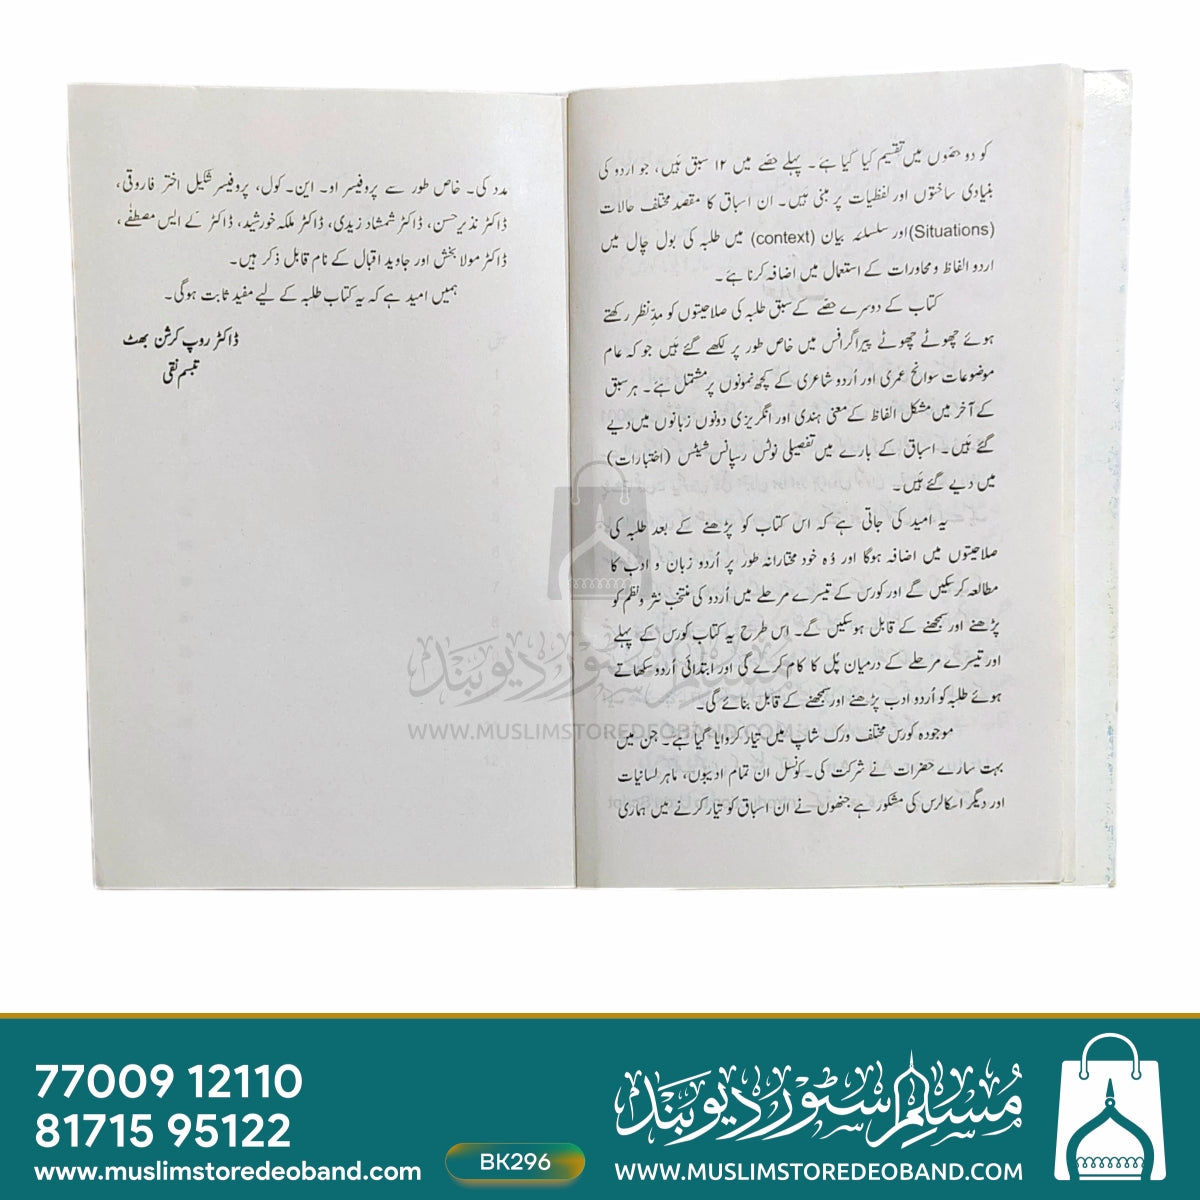 کو دو حصّوں میں تقسیم کیا گیا ہے۔ پہلے حصّے میں ۱۲ سبق ہیں، جو اردو کی
بنیادی ساختوں اور لفظیات پر مبنی ہیں۔ ان اسباق کا مقصد مختلف حالات
(Situations) اور سلسلۂ بیان (context) میں طلبہ کی بول چال میں
اردو الفاظ و محاورات کے استعمال میں اضافہ کرنا ہے۔
کتاب کے دوسرے حصّے کے سبق طلبہ کی صلاحیتوں کو مدِّ نظر رکھتے
ہوئے چھوٹے چھوٹے پیراگرافس میں خاص طور پر لکھے گئے ہیں جو کہ عام
موضوعات سوانح عمری اور اُردو شاعری کے کچھ نمونوں پر مشتمل ہے۔ ہر سبق
کے آخر میں مشکل الفاظ کے معنی ہندی اور انگریزی دونوں زبانوں میں دیے
گئے ہیں۔ اسباق کے بارے میں تفصیلی نوٹس رسپانس شیٹس (اختبارات)
میں دیے گئے ہیں۔
یہ امید کی جاتی ہے کہ اس کتاب کو پڑھنے کے بعد طلبہ کی
صلاحیتوں میں اضافہ ہوگا اور وُہ خود مختارانہ طور پر اُردو زبان و ادب کا
مطالعہ کرسکیں گے اور کورس کے تیسرے مرحلے میں اُردو کی منتخب نثر و نظم کو
پڑھنے اور سمجھنے کے قابل ہوسکیں گے۔ اِس طرح یہ کتاب کورس کے پہلے
اور تیسرے مرحلے کے درمیان پُل کا کام کرے گی اور ابتدائی اُردو سکھاتے
ہوئے طلبہ کو اُردو ادب پڑھنے اور سمجھنے کے قابل بنائے گی۔
موجودہ کورس مختلف ورک شاپ میں تیار کروایا گیا ہے۔ جن میں
بہت سارے حضرات نے شرکت کی۔ کونسل ان تمام ادیبوں، ماہر لسانیات
اور دیگر اسکالرس کی مشکور ہے جنھوں نے ان اسباق کو تیار کرنے میں ہماری
مدد کی۔ خاص طور سے پروفیسر او۔ این۔ کول، پروفیسر شکیل اختر فاروقی،
ڈاکٹر نذیر حسن، ڈاکٹر شمشاد زیدی، ڈاکٹر ملکہ خورشید، ڈاکٹر کے ایس مصطفٰے،
ڈاکٹر مولا بخش اور جاوید اقبال کے نام قابل ذکر ہیں۔
ہمیں امید ہے کہ یہ کتاب طلبہ کے لیے مفید ثابت ہوگی۔
ڈاکٹر روپ کرشن بھٹ
تبسم نقی
مسلم سٹور دیوبند
WWW.MUSLIMSTOREDEOBAND.COM
77009 12110
81715 95122
www.muslimstoredeoband.com
BK296
مسلم سٹور دیوبند
WWW.MUSLIMSTOREDEOBAND.COM